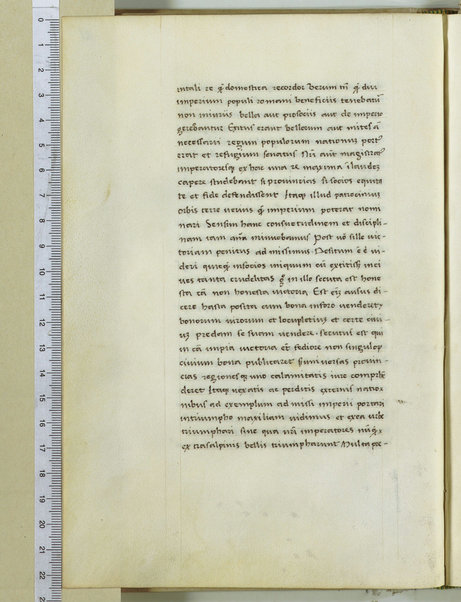 intali re q̃ domestica recordor Verum tñ q̃ diu
imperium populi romani beneficiis tenebatur̃
non iniuriis bella aut prosociis aut de imperio
gerebantur Exitus erant bellorum aut mites aut
necessarii regum populorum nationum port9
erat et refugium senatus Nr̃i aut magistratus
imperatoresq; ex hac una re maxima laudez
capere studebant si provincias si socios equita
te et fide defendissent Itaq; illud patrocinium
orbis terre verius q̃ imperium poterat nomi
nari Sensim hanc consuetudinem et discipli
nam iam antea minuebamus Post vo sille vic
toriam penitus admissimus Desitum e e vi
deri quicq; insocios iniquum cũ extitisset inci
ves tanta crudelitas q in illo secuta est hone
sta cã non honesta victoria Est eñ ausus di
cere hasta posita cum bona inforo venderet
bonorum virorum et locupletium et certe civi
uz predam se suam vendere secutus est qui
in cã impia victoria et fediore non singulorũ
civium bona publicaret s universas provin
cias regionesq; uno calamitatis iure comprehẽ
deret Itaq; vexatis ac perditis exteris natio
nibus ad exemplum admissi imperii portari
intriumpho maxiliam vidimus et exea urbe
triumphari sine qua nr̃i imperatores nũq̃
ex trasalpinis bellis triumpharunt Multa pre-